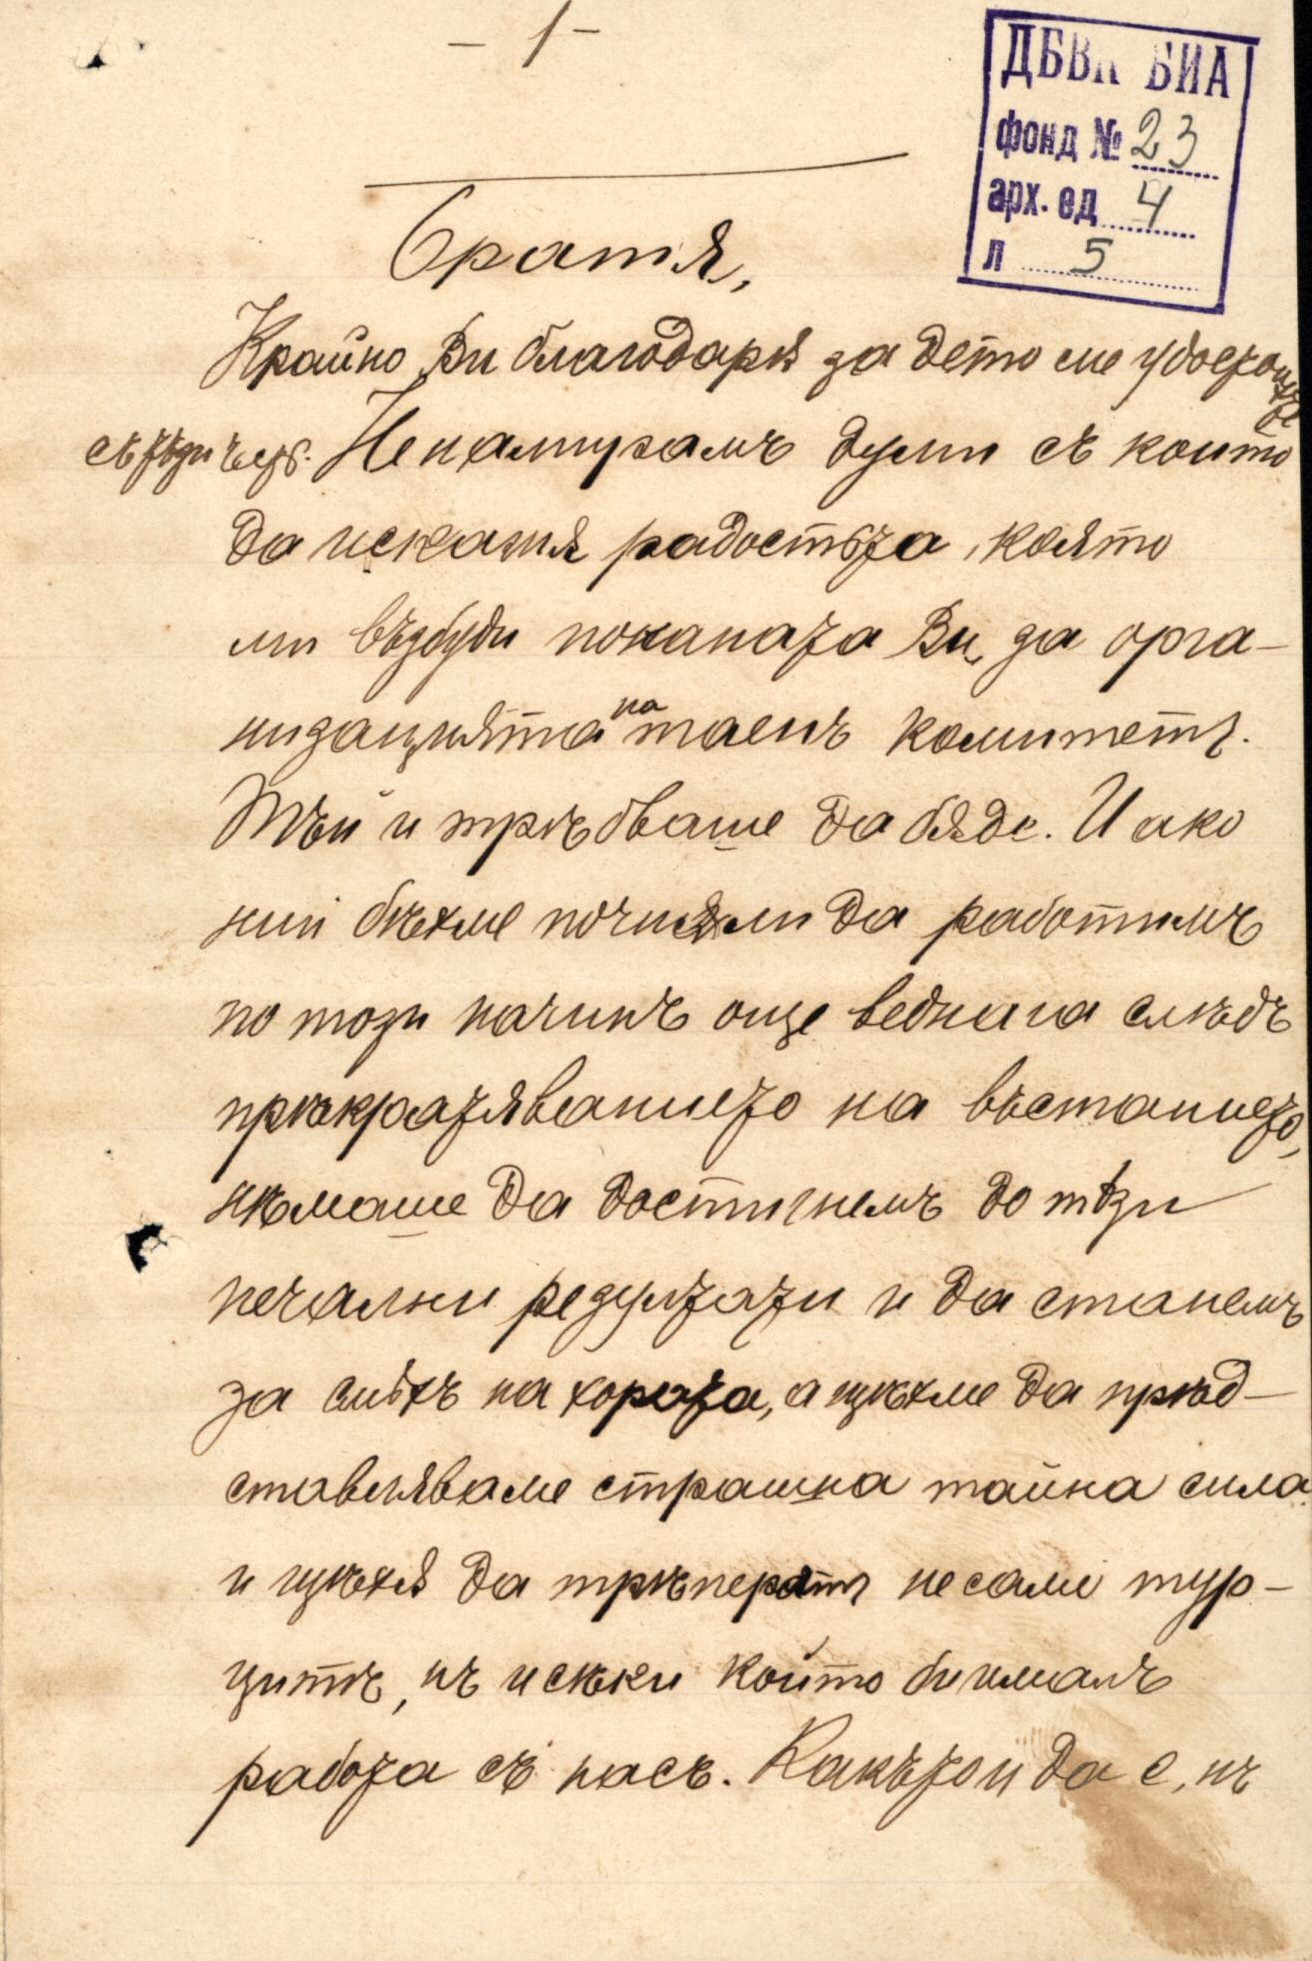 – 1 –
ДБВК БИА
фонд № 23
арх. ед 4
л 5
Братя,
Крайно Ви благодарѭ за дето ме удостоихте
съ тѣзи честь. Не намирамъ думи съ които
да искажѫ радостьта, която
ми възбуди поканата Ви, за орга-
низацията на таенъ комитетъ.
Тъй и трѣбваше да бѫде. И ако
ний бѣхме почнѫли да работимъ
по този начинъ още веднага слѣдъ
прѣкратяваниего на въстаниего,
нѣмаше да достигнемъ до тѣзи
печални резултати и да станемъ
за смѣхъ на хората, а щѣхме да прѣд-
ставляваме страшна тайна сила
и щѣхѫ да трѣперятъ не само тур-
цитѣ, нъ и сѣки който би ималъ
работа съ насъ. Какъто и да е, нъ